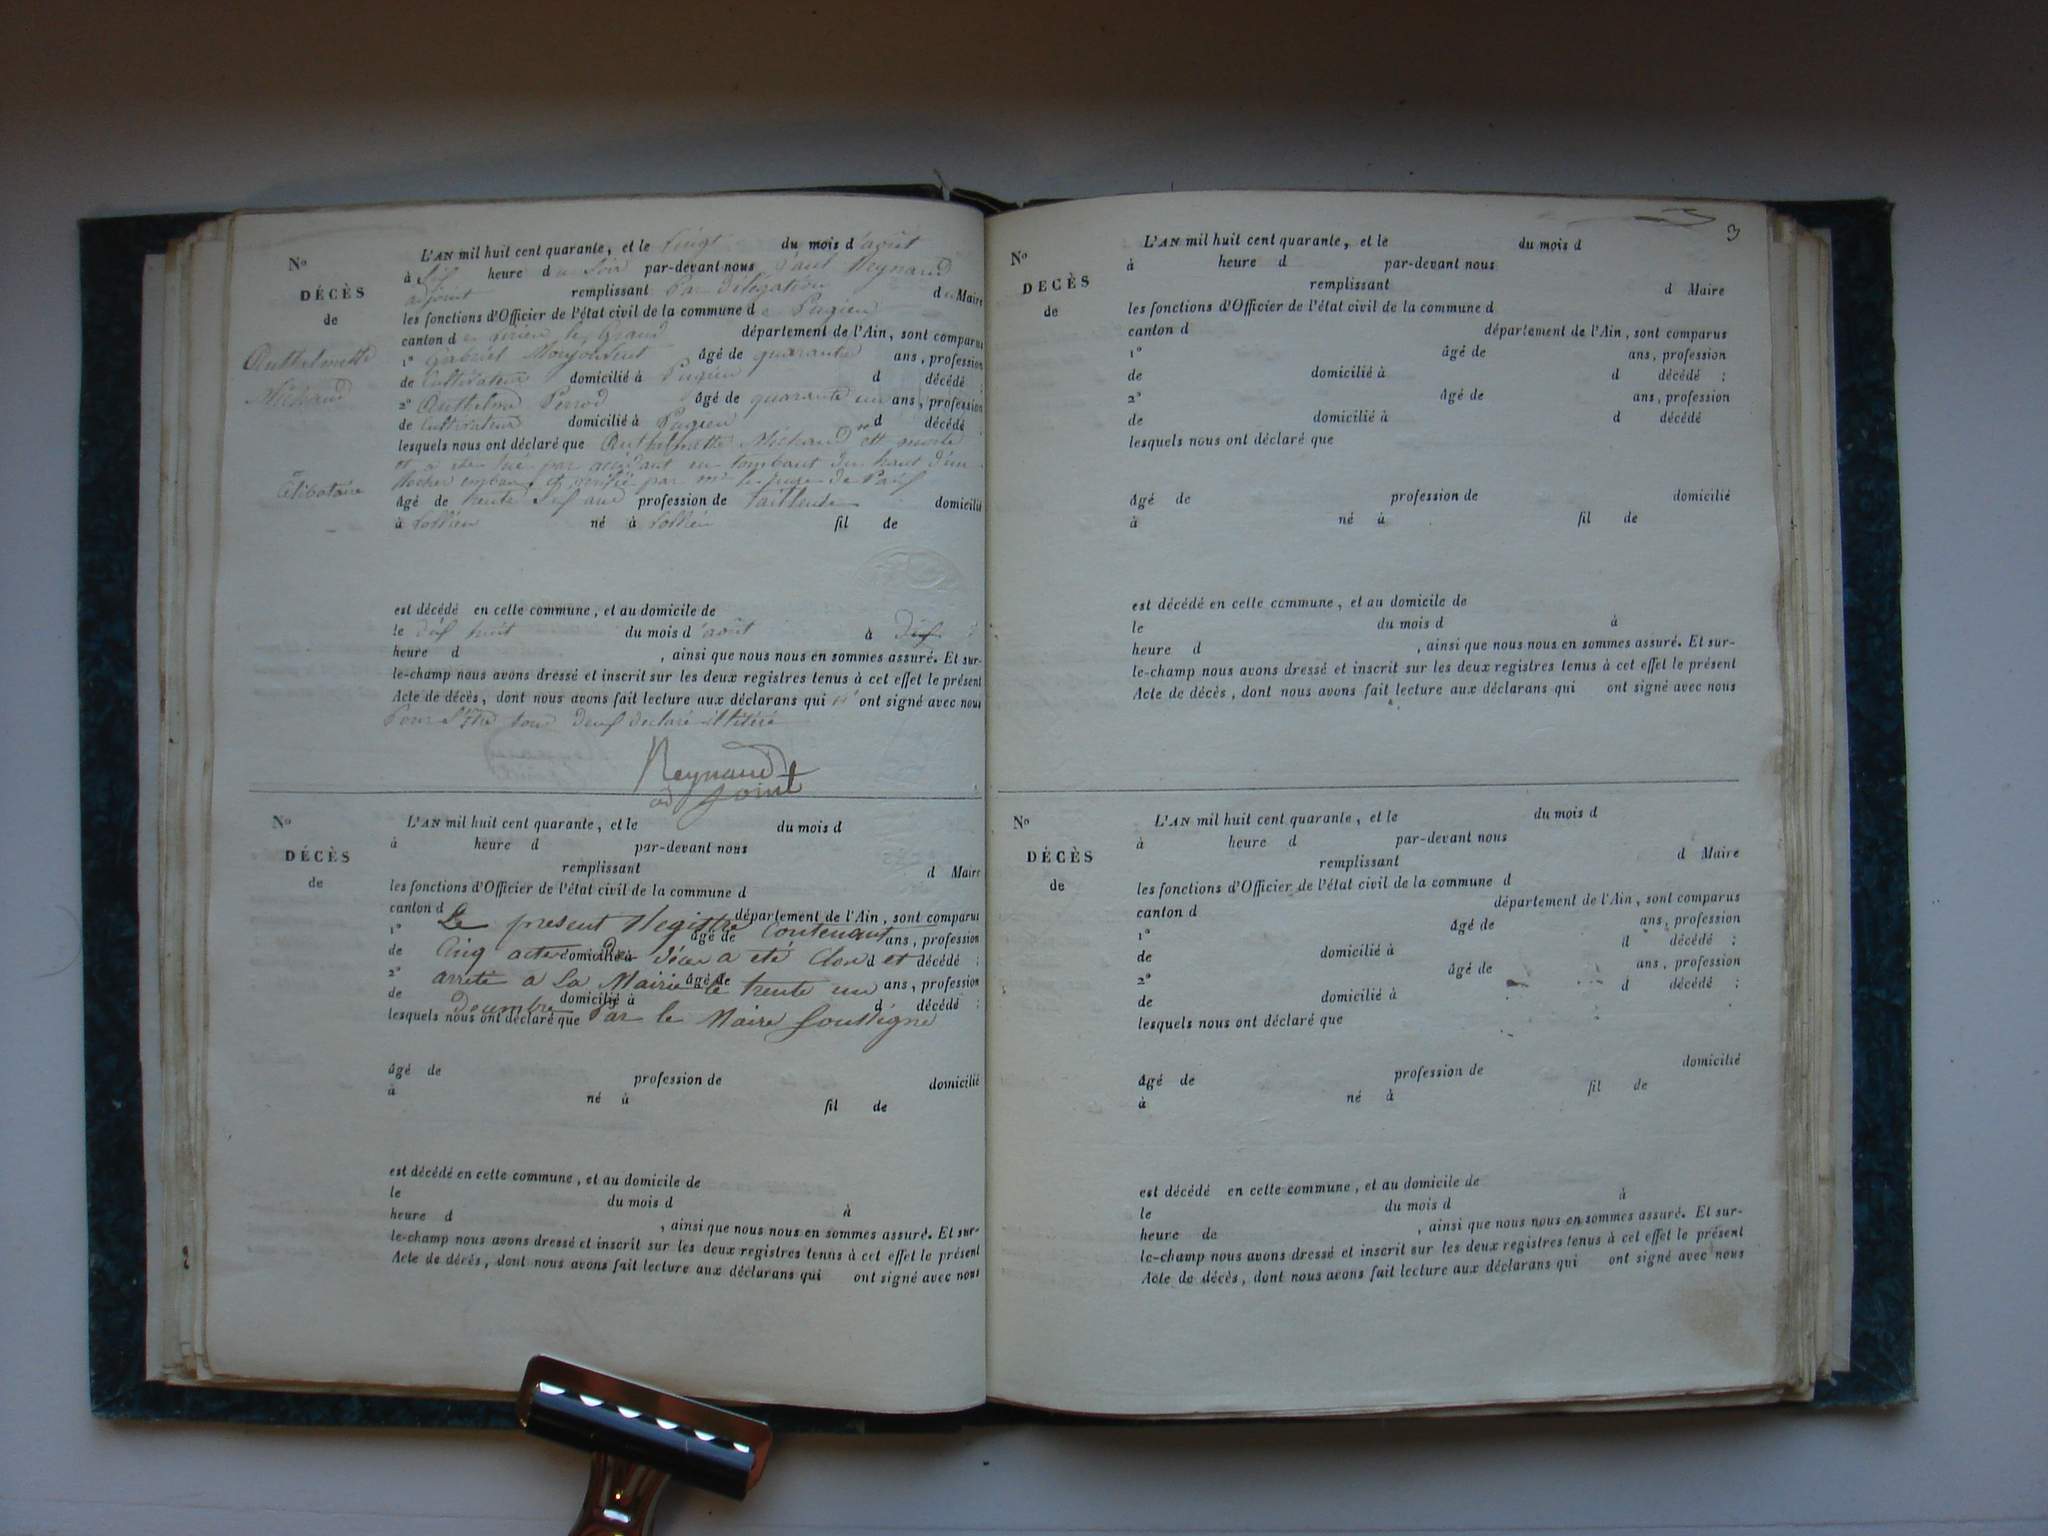 No
DÉCÈS
de
Anthelmette
Michaud
Célibataire
L'AN mil huit cent quarante, et le vingt du mois d'août
à Six heure du Soir par-devant nous Paul Reynaud
adjoint remplissant Par délégation du Maire
les fonctions d'Officier de l'état civil de la commune de Pugieu
canton de Virieu le Grand département de l'Ain, sont comparus
1° Gabriel Monjouvent âgé de quarante ans, profession
de Cultivateur domicilié à Pugieu d décédé ;
2° Anthelme Perrod âgé de quarante un ans, profession
de Cultivateur domicilié à Pugieu d décédé ;
lesquels nous ont déclaré que Anthelmette Michaud est morte
et a été par accidant en tombant du haut d'un
Rocher en bas et vérifié par mr le juge de Paix
âgé de trente Six ans profession de Tailleuse domicilié
à Lollieu né à Lollieu fil de
est décédé en cette commune, et au domicile de
le dix huit du mois d'août à Dix
heure d , ainsi que nous nous en sommes assuré. Et sur-
le-champ nous avons dressé et inscrit sur les deux registres tenus à cet effet le présent
Acte de décès, dont nous avons fait lecture aux déclarans qui n'ont signé avec nous
Pour S'être tous deux declaré illitéré
Reynaud
adjoint
No
DÉCÈS
de
L'AN mil huit cent quarante, et le du mois d
à heure d par-devant nous
remplissant d Maire
les fonctions d'Officier de l'état civil de la commune d
canton d département de l'Ain, sont comparus
Le present Registre Contenant
1° âgé de ans, profession
Cinq actes de décès a eté Clos et
de domicilié à d décédé ;
arreté a La Mairie le trente un
2° âgé de ans, profession
de domicilié à d décédé ;
Decembre Par le Maire Soussigné
lesquels nous ont déclaré que
âgé de profession de domicilié
à né à fil de
est décédé en cette commune, et au domicile de
le du mois d à
heure d , ainsi que nous nous en sommes assuré. Et sur-
le-champ nous avons dressé et inscrit sur les deux registres tenus à cet effet le présent
Acte de décès, dont nous avons fait lecture aux déclarans qui ont signé avec nous
3
No
DÉCÈS
de
L'AN mil huit cent quarante, et le du mois d
à heure d par-devant nous
remplissant d Maire
les fonctions d'Officier de l'état civil de la commune d
canton d département de l'Ain, sont comparus
1° âgé de ans, profession
de domicilié à d décédé ;
2° âgé de ans, profession
de domicilié à d décédé
lesquels nous ont déclaré que
âgé de profession de domicilié
à né à fil de
est décédé en cette commune, et au domicile de
le du mois d à
heure d , ainsi que nous nous en sommes assuré. Et sur-
le-champ nous avons dressé et inscrit sur les deux registres tenus à cet effet le présent
Acte de décès, dont nous avons fait lecture aux déclarans qui ont signé avec nous
No
DÉCÈS
de
L'AN mil huit cent quarante, et le du mois d
à heure d par-devant nous
remplissant d Maire
les fonctions d'Officier de l'état civil de la commune d
canton d département de l'Ain, sont comparus
1° âgé de ans, profession
de domicilié à d décédé ;
2° âgé de ans, profession
de domicilié à d décédé ;
lesquels nous ont déclaré que
âgé de profession de domicilié
à né à fil de
est décédé en cette commune, et au domicile de
le du mois d à
heure de , ainsi que nous nous en sommes assuré. Et sur-
le-champ nous avons dressé et inscrit sur les deux registres tenus à cet effet le présent
Acte de décès, dont nous avons fait lecture aux déclarans qui ont signé avec nous